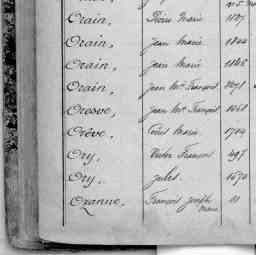 Orain, Pierre Marie 1137
Orain, Jean Marie 1844
Orain, Jean Marie 1846
Orain, Jean Mie François
Oresve, Jean Mie François 1568
Orève, Marie 1794
Ory, Victor François 497
Ory, Jules 1670
Ozanne, François Joseph 11
Marie